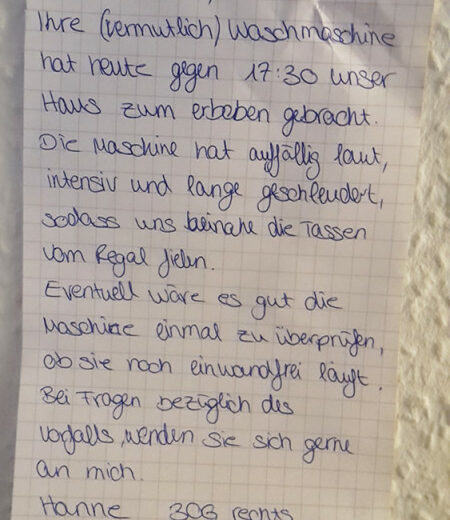 Ihre (vermutlich) Waschmaschine
hat heute gegen 17:30 unser
Haus zum erbeben gebracht.
Die Maschine hat auffällig laut,
intensiv und lange geschleudert,
sodass uns beinahe die Tassen
vom Regal fielen.
Eventuell wäre es gut die
Maschine einmal zu überprüfen,
ob sie noch einwandfrei läuft.
Bei Fragen bezüglich des
Vorfalls, wenden Sie sich gerne
an mich.
Hanne 306 rechts